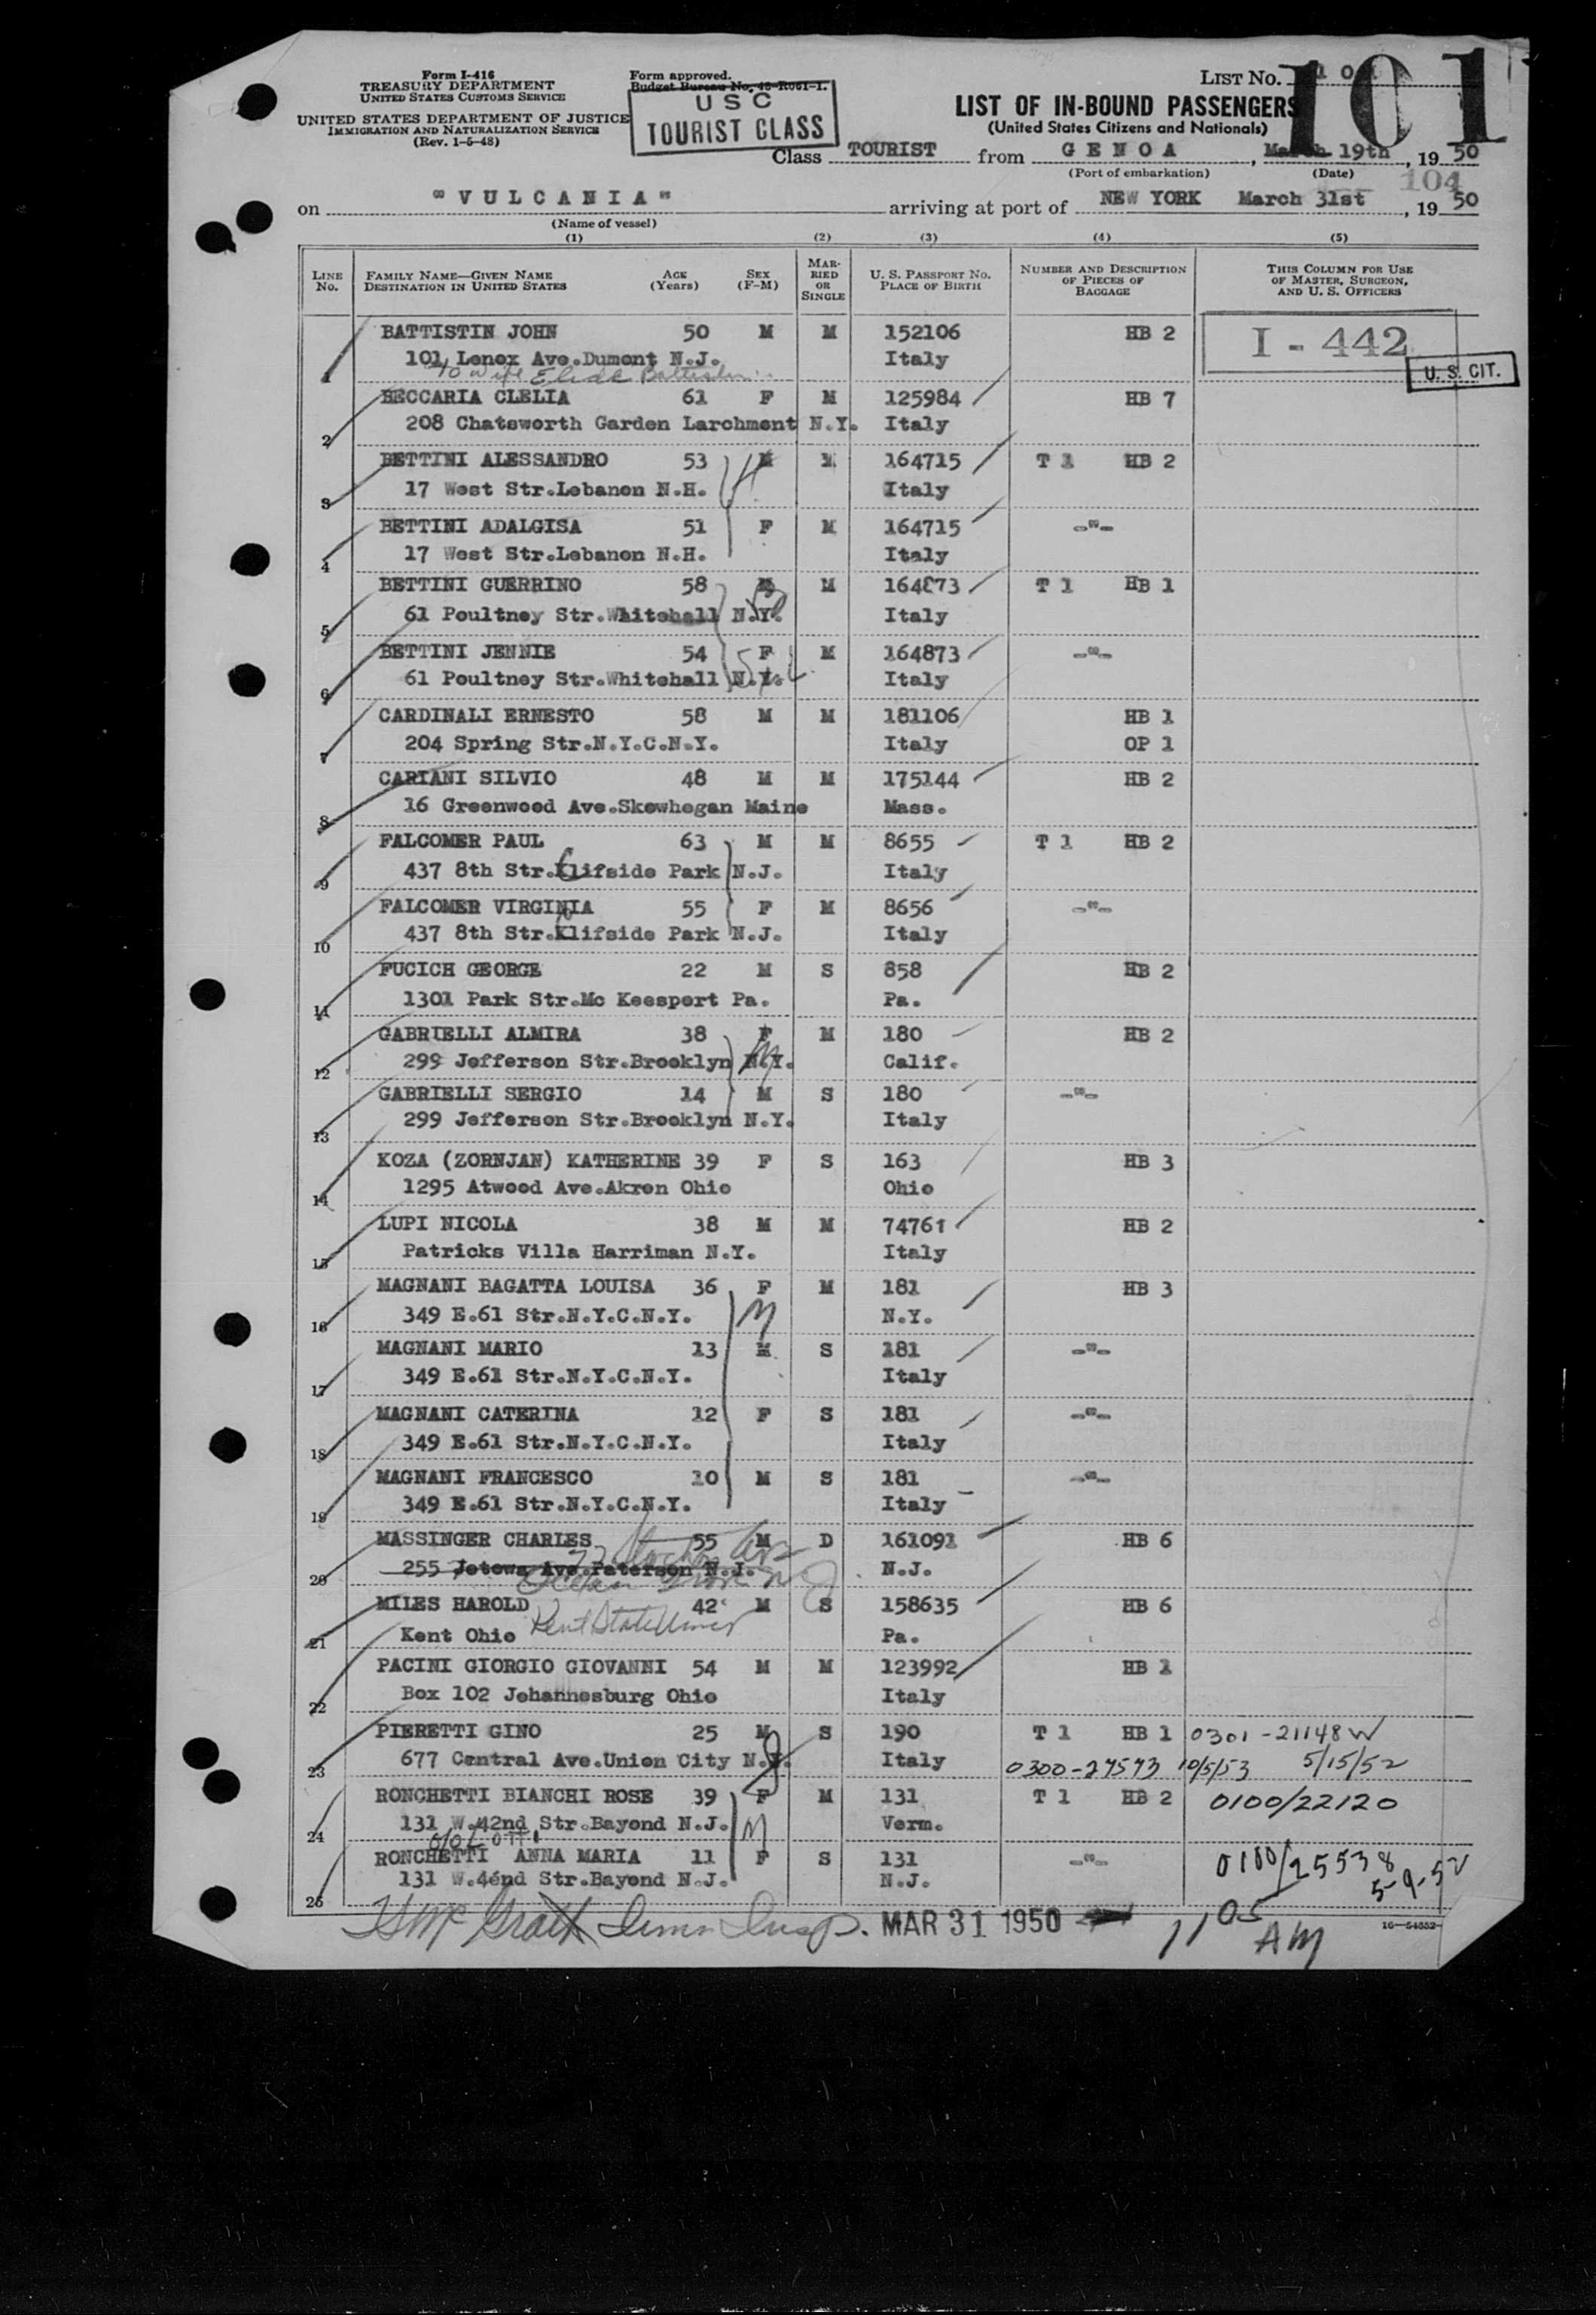 Form I-416
TREASURY DEPARTMENT
UNITED STATES CUSTOMS SERVICE
UNITED STATES DEPARTMENT OF JUSTICE
IMMIGRATION AND NATURALIZATION SERVICE
(Rev. 1-5-48)
Form approved.
Budget Bureau No. 43-R061-1.
USC
TOURIST CLASS
LIST NO. 101
101
LIST OF IN-BOUND PASSENGERS
(United States Citizens and Nationals)
Class TOURIST from GENOA, March 19th, 19 50
(Port of embarkation) (Date)
104
on "VULCANIA" arriving at port of NEW YORK March 31st, 19 50
(Name of vessel)
(1) (2) (3) (4) (5)
LINE No. FAMILY NAME—GIVEN NAME DESTINATION IN UNITED STATES AGE (Years) SEX (F-M) MARRIED OR SINGLE U. S. PASSPORT NO. PLACE OF BIRTH NUMBER AND DESCRIPTION OF PIECES OF BAGGAGE THIS COLUMN FOR USE OF MASTER, SURGEON, AND U. S. OFFICERS
I-442
U. S. CIT.
BATTISTIN JOHN 50 M M 152106 HB 2
1 101 Lenox Ave.Dumont N.J. Italy
to wife Elide Battistin
BECCARIA CLELIA 61 F M 125984 HB 7
2 208 Chatsworth Garden Larchment N.Y. Italy
BETTINI ALESSANDRO 53 M M 164715 T 1 HB 2
3 17 West Str.Lebanon N.H. Italy
BETTINI ADALGISA 51 F M 164715 -"-
4 17 West Str.Lebanon N.H. Italy
BETTINI GUERRINO 58 M M 164873 T 1 HB 1
5 61 Poultney Str.Whitehall N.Y. Italy
BETTINI JENNIE 54 F M 164873 -"-
6 61 Poultney Str.Whitehall N.Y. Italy
CARDINALI ERNESTO 58 M M 181106 HB 1
7 204 Spring Str.N.Y.C.N.Y. Italy OP 1
CARIANI SILVIO 48 M M 175144 HB 2
8 16 Greenwood Ave.Skowhegan Maine Mass.
FALCOMER PAUL 63 M M 8655 T 1 HB 2
9 437 8th Str.Clifside Park N.J. Italy
FALCOMER VIRGINIA 55 F M 8656 -"-
10 437 8th Str.Klifside Park N.J. Italy
FUCICH GEORGE 22 M S 858 HB 2
11 1301 Park Str.Mc Keesport Pa. Pa.
GABRIELLI ALMIRA 38 F M 180 HB 2
12 299 Jefferson Str.Brooklyn N.Y. Calif.
GABRIELLI SERGIO 14 M S 180 -"-
13 299 Jefferson Str.Brooklyn N.Y. Italy
KOZA (ZORNJAN) KATHERINE 39 F S 163 HB 3
14 1295 Atwood Ave.Akron Ohio Ohio
LUPI NICOLA 38 M M 74761 HB 2
15 Patricks Villa Harriman N.Y. Italy
MAGNANI BAGATTA LOUISA 36 F M 181 HB 3
16 349 E.61 Str.N.Y.C.N.Y. N.Y.
MAGNANI MARIO 13 M S 181 -"-
17 349 E.61 Str.N.Y.C.N.Y. Italy
MAGNANI CATERINA 12 F S 181 -"-
18 349 E.61 Str.N.Y.C.N.Y. Italy
MAGNANI FRANCESCO 10 M S 181 -"-
19 349 E.61 Str.N.Y.C.N.Y. Italy
MASSINGER CHARLES 55 M D 161091 HB 6
20 255 Totowa Ave.Paterson N.J. N.J.
MILES HAROLD 42 M S 158635 HB 6
21 Kent Ohio Kent State Univer Pa.
PACINI GIORGIO GIOVANNI 54 M M 123992 HB 1
22 Box 102 Johannesburg Ohio Italy
PIERETTI GINO 25 M S 190 T 1 HB 1 0301-21148 W
23 677 Central Ave.Union City N.J. Italy 0300-27573 10/5/53 5/15/52
RONCHETTI BIANCHI ROSE 39 F M 131 T 1 HB 2 0100/22120
24 131 W.42nd Str.Bayond N.J. Verm.
RONCHETTI ANNA MARIA 11 F S 131 -"- 0100/25538
25 131 W.42nd Str.Bayond N.J. N.J. 5-9-52
McGrath Imm Insp. MAR 31 1950 1105 AM
16—54552-